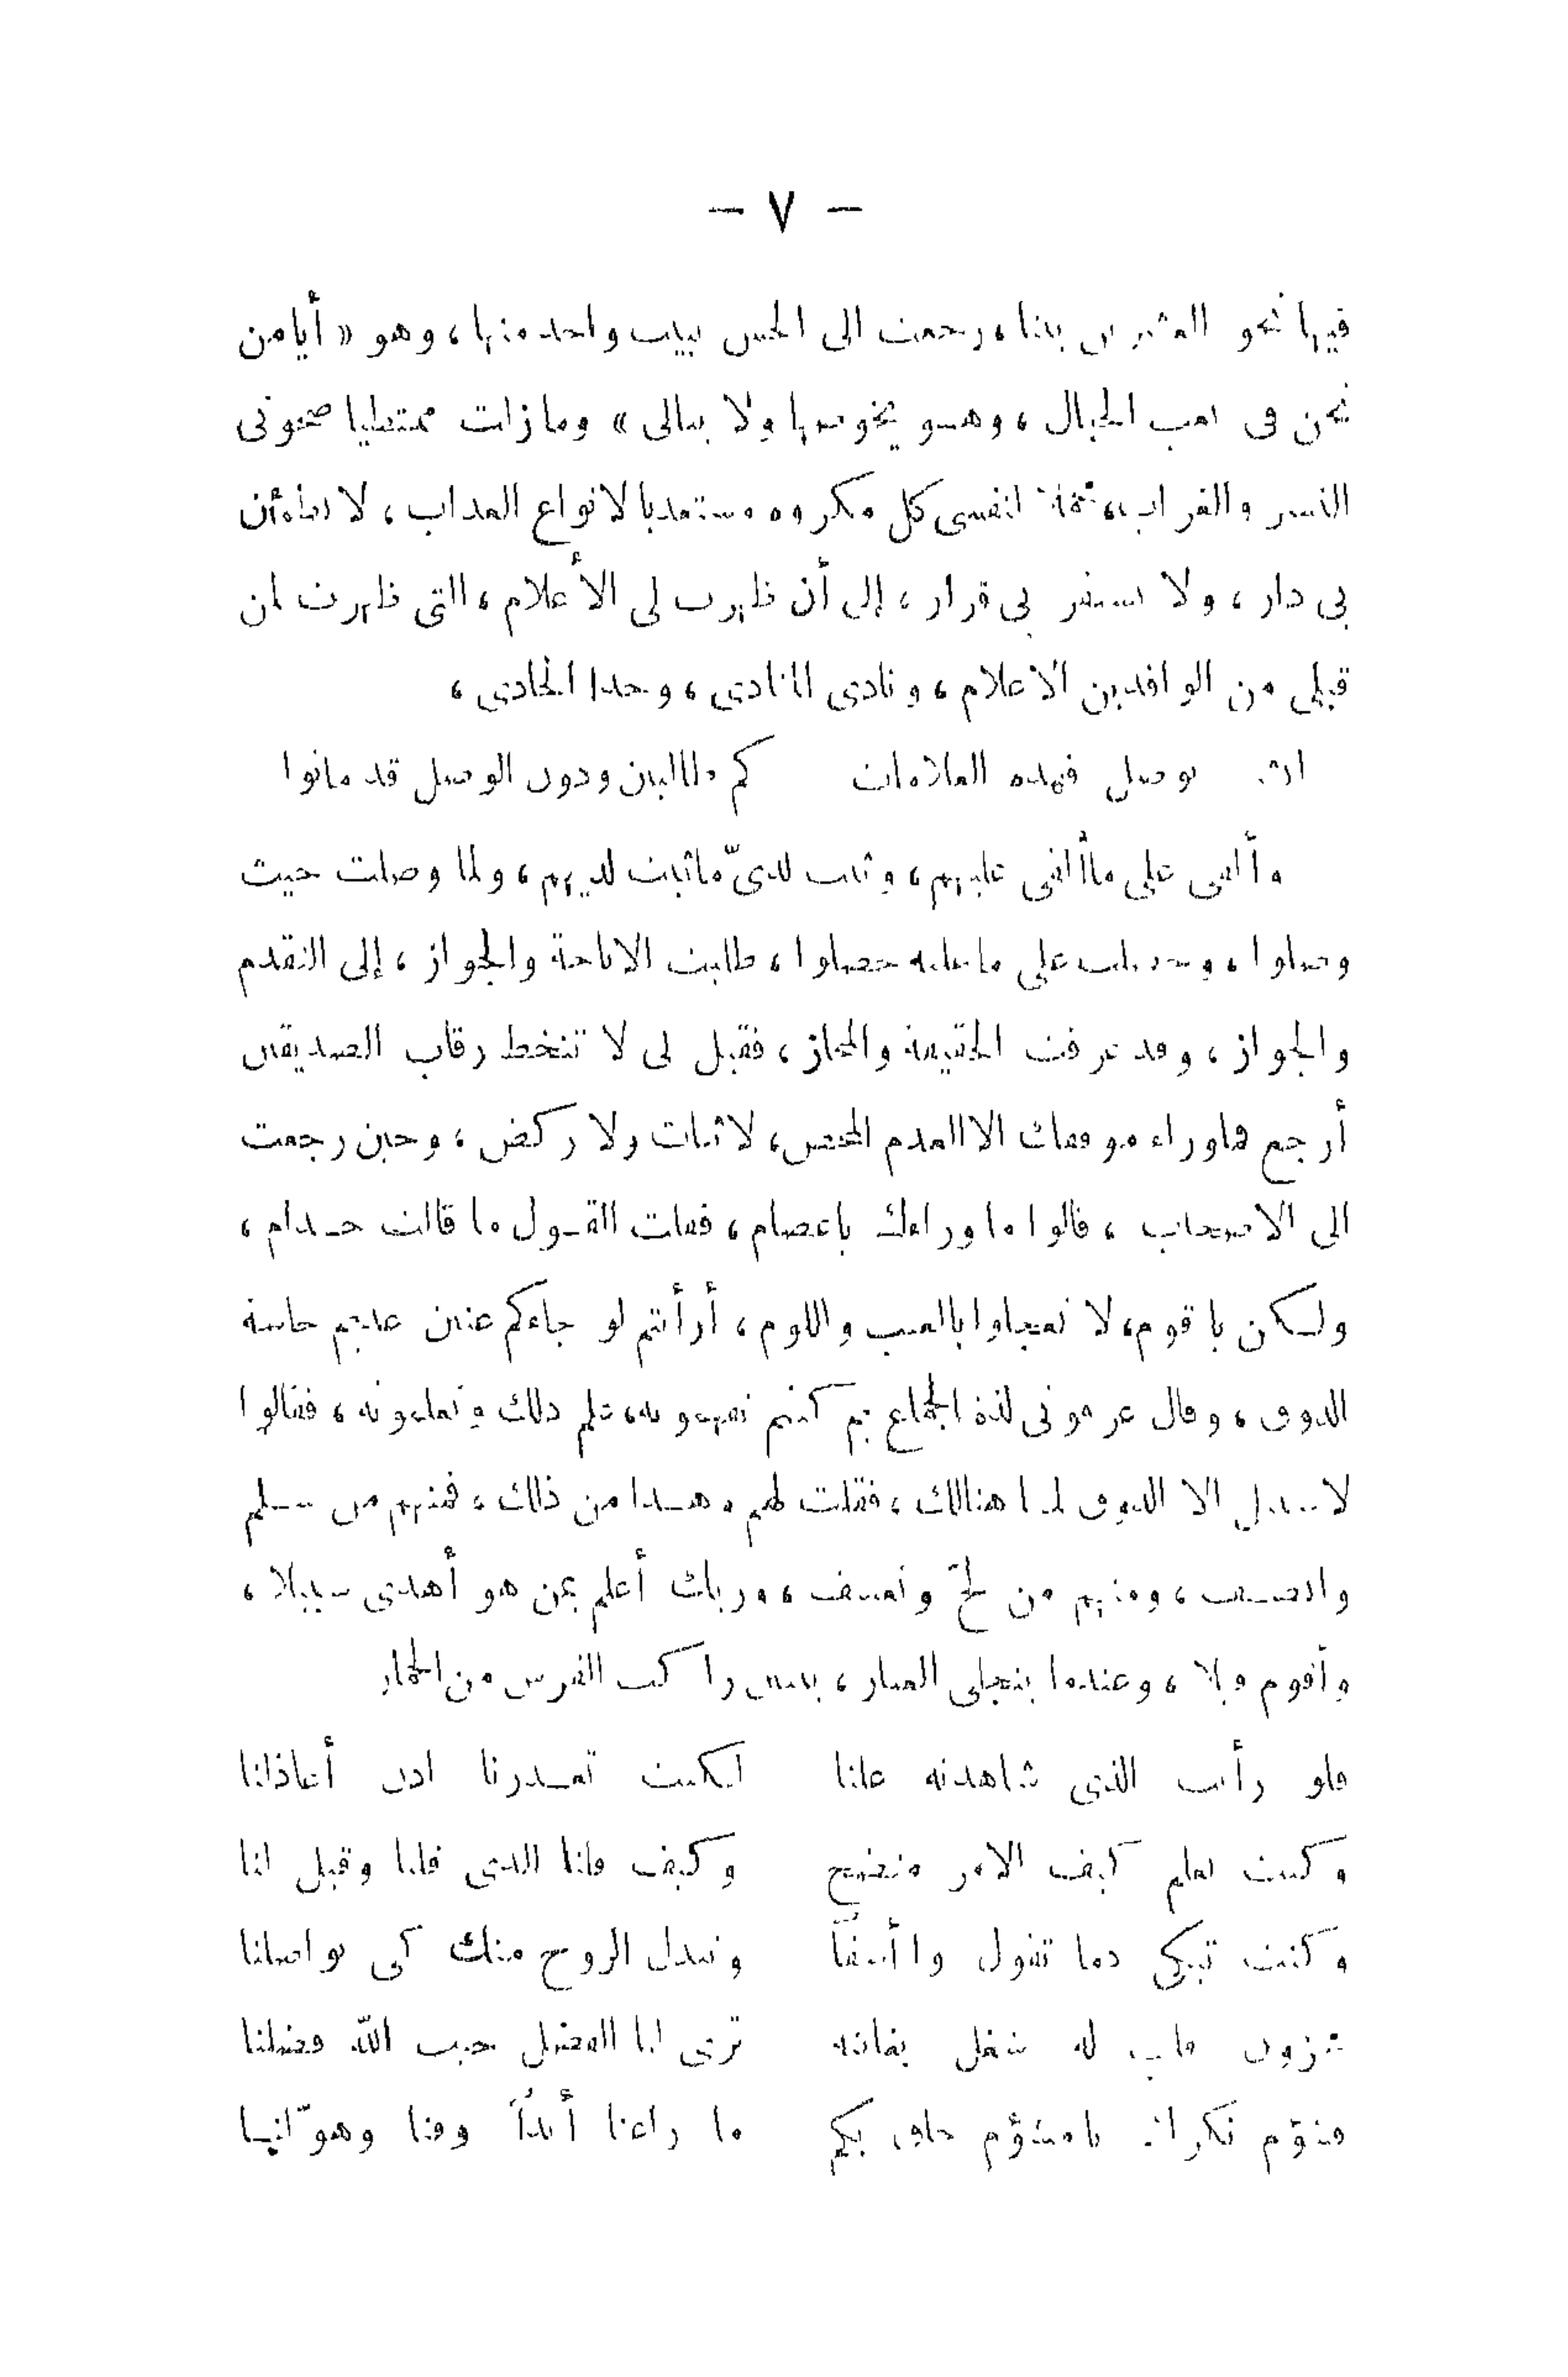 — ٧ —
فيها نحو العشرين بيتا، رجعت الى الحس ببيت واحد منها، وهو « أيا من
نحن فى تعب الخيال، وهو يخوضها ولا يبالى » وما زلت ممتطيا صحوتى
النسر والغراب، لنفسى كل مكروه مستعذبا لانواع العذاب، لا تطمأن
بى دار، ولا يستقر بى قرار، إلى أن ظهرت لى الأعلام، التى ظهرت لمن
قبلى من الوافدين الاعلام، ونادى المنادى، وحدا الحادى،
توصل فهذه العلامات كم طالبين ودون الوصل قد ماتوا
وألقى على ما ألقى عليهم، وثبت لدىّ ما ثبت لديهم، ولما وصلت حيث
وصلوا، وحصلت على ما عليه حصلوا، طلبت الاباحة والجواز، إلى التقدم
والجواز، وقد عرفت الحقيقة والمجاز، فقيل لى لا تتخط رقاب الصديقين
أرجع فما وراء موقفك الا العدم المحض، لا ثبات ولا ركض، وحين رجعت
الى الاصحاب، قالوا ما وراءك ياعصام، فقلت القول ما قالت حذام،
ولكن يا قوم، لا تعجلوا بالعتب واللوم، أرأيتم لو جاءكم عنين عديم حاسة
الذوق، وقال عرفونى لذة الجماع بم كنتم تفهمونه، علم ذلك وتعلمونه، فقالوا
لا سبيل الا الذوق لما هنالك، فقلت لهم وهذا من ذلك، فمنهم من سلم
وانصف، ومنهم من لجّ وتعسف، وربك أعلم بمن هو أهدى سبيلا،
وأقوم قيلا، وعندما ينجلى الغبار، يتبين راكب الفرس من الحمار
فلو رأيت الذى شاهدته علنا لكنت تعذرنا اذن أعاذلنا
وكنت تعلم كيف الامر متضح وكيف قلنا الذى قلنا وقيل لنا
وكنت تبكى دما تقول وا أسفاً وتبذل الروح منك كى تواصلنا
له شغل بفائته ترى لنا الفضل حيث الله فضلنا
ما راعنا أبداً